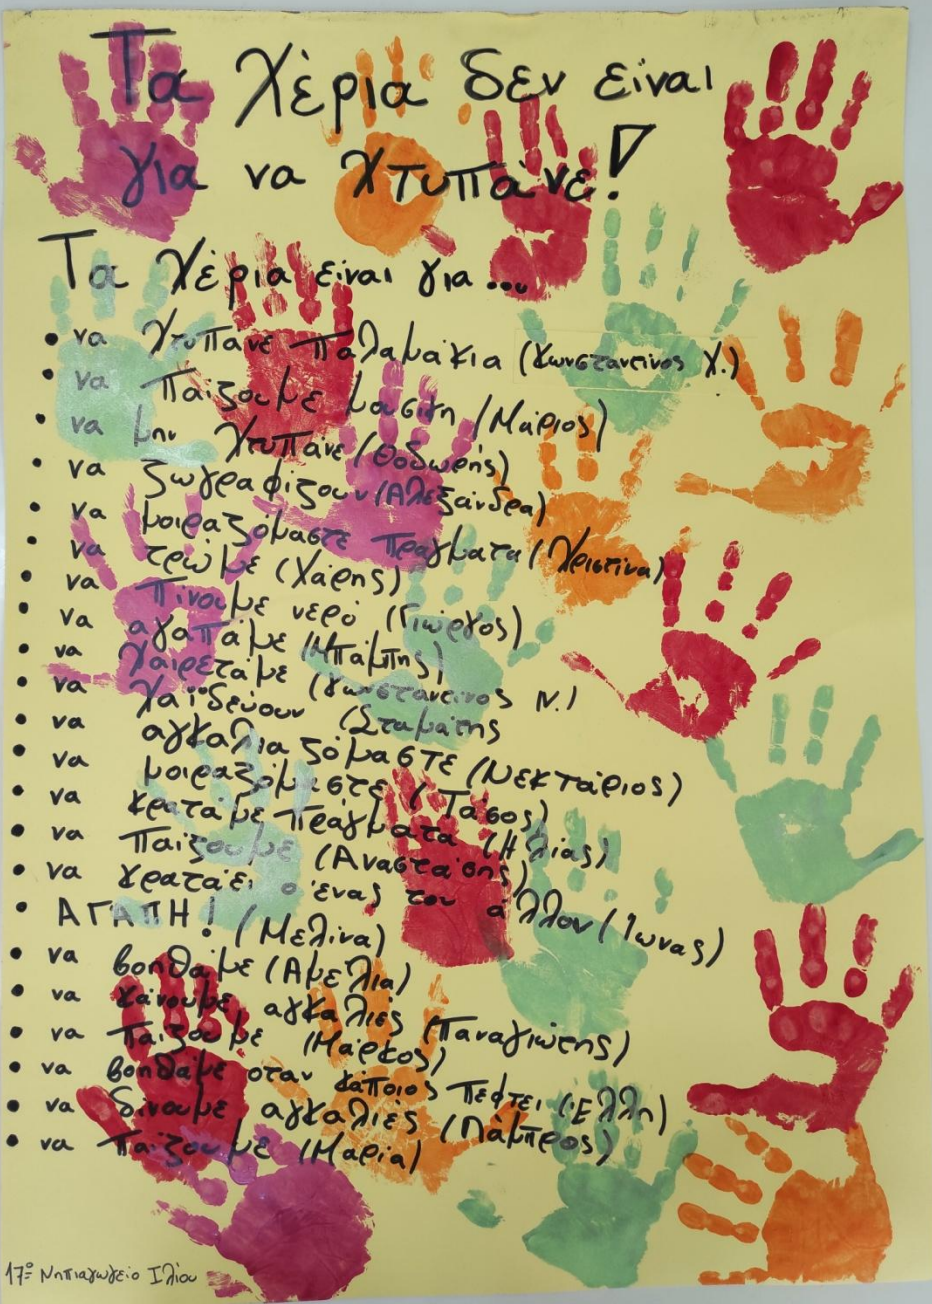 Τα χέρια δεν είναι
για να χτυπάνε!
Τα χέρια είναι για...
• να χτυπάνε παλαμάκια (Κωνσταντίνος Χ.)
• να παίζουμε μαζί τη (Μάριος)
• να μην χτυπάνε (Θοδωρής)
• να ζωγραφίζουν (Αλεξάνδρα)
• να μοιραζόμαστε πράγματα (Χριστίνα)
• να τρώμε (Χάρης)
• να πίνουμε νερό (Γιώργος)
• να αγαπάμε (Μπάμπης)
• να χαιρετάμε (Κωνσταντίνος Ν.)
• να χαϊδεύουν (Σταμάτης
• να αγκαλιαζόμαστε (Νεκτάριος)
• να μοιραζόμαστε (Τάσος)
• να κρατάμε πράγματα (Ηλίας)
• να παίζουμε (Αναστάσης)
• να κρατάει ο ένας τον άλλον (Ιωνάς)
• ΑΓΑΠΗ! (Μελίνα)
• να βοηθάμε (Αμέλια)
• να κάνουμε αγκαλιές (Παναγιώτης)
• να παίζουμε (Μάρκος)
• να βοηθάμε οταν κάποιος πέφτει (Έλλη)
• να δίνουμε αγκαλιές (Λάμπρος)
• να παίζουμε (Μαρία)
17º Νηπιαγωγείο Ιλίου